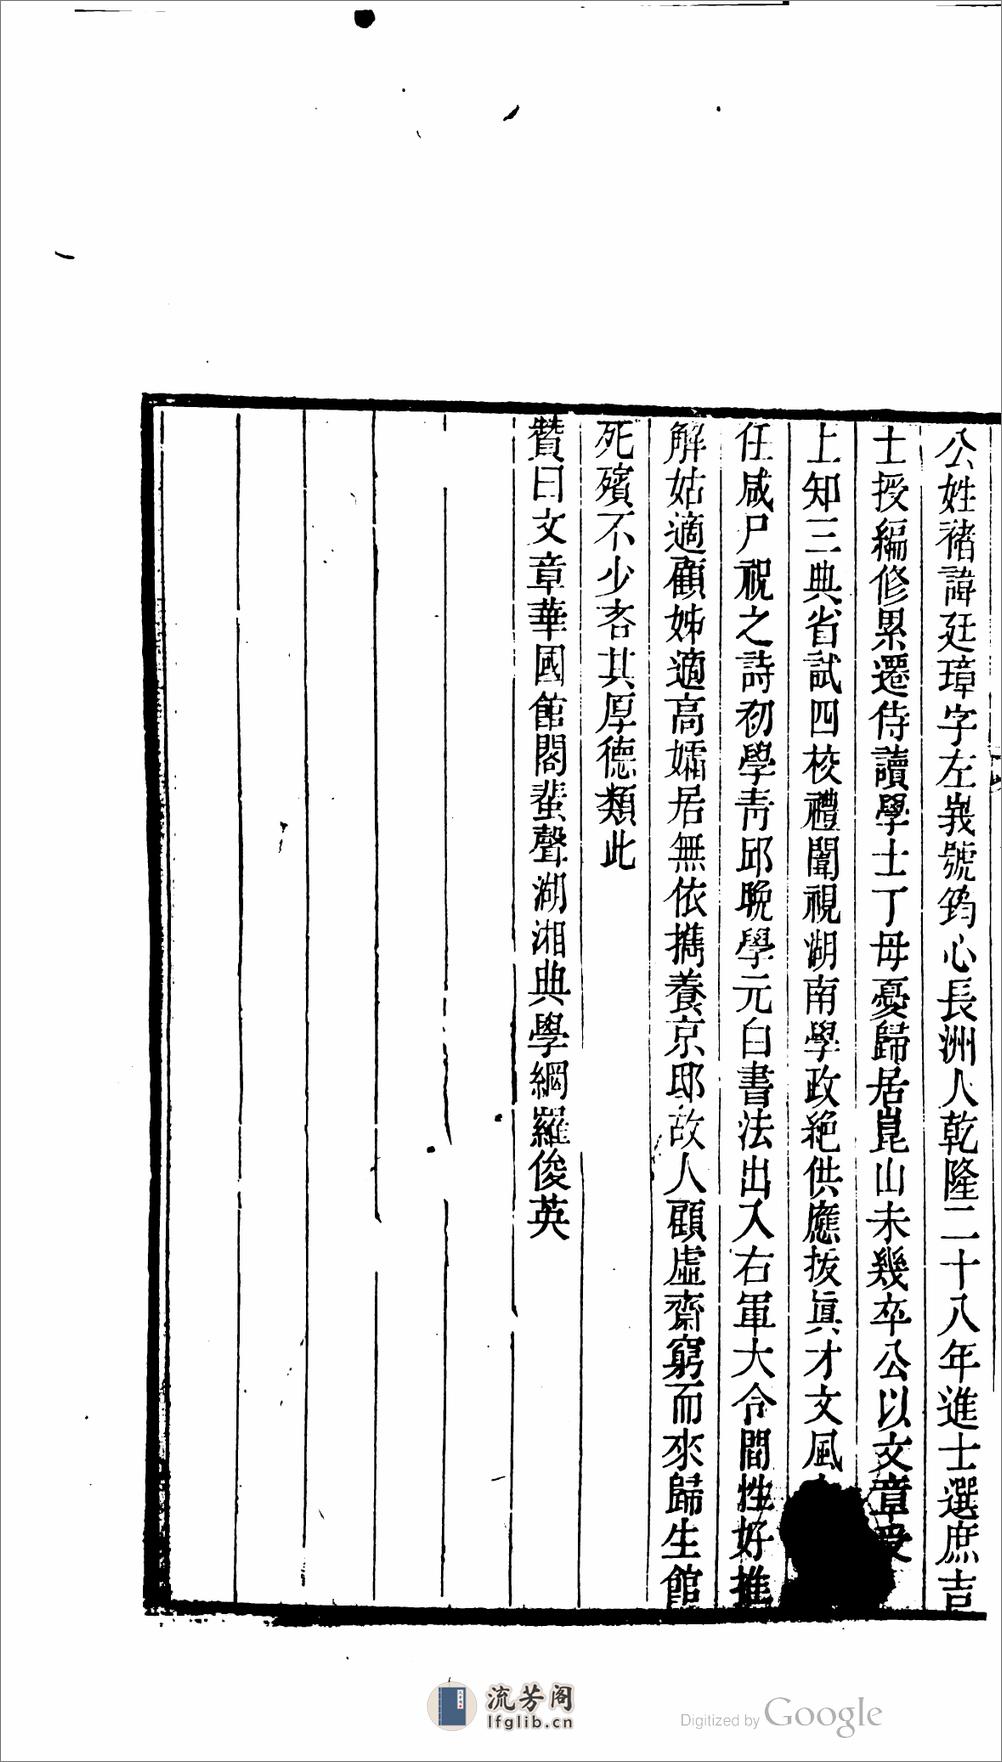 公姓褚諱廷璋字左峩號筠心長洲人乾隆二十八年進士選庶吉
士授編修累遷侍讀學士丁母憂歸居崑山未幾卒公以文章受
上知三典省試四校禮闈視湖南學政絶供應拔眞才文風
任咸尸祝之詩初學靑邱晩學元白書法出入右軍大令間性好推
解姑適顧姊適高孀居無依擕養京邸故人顧虛齋窮而來歸生館
死殯不少吝其厚德類此
贊曰文章華國館閣蜚聲湖湘典學網羅俊英
流芳阁
lfglib.cn
Digitized by Google